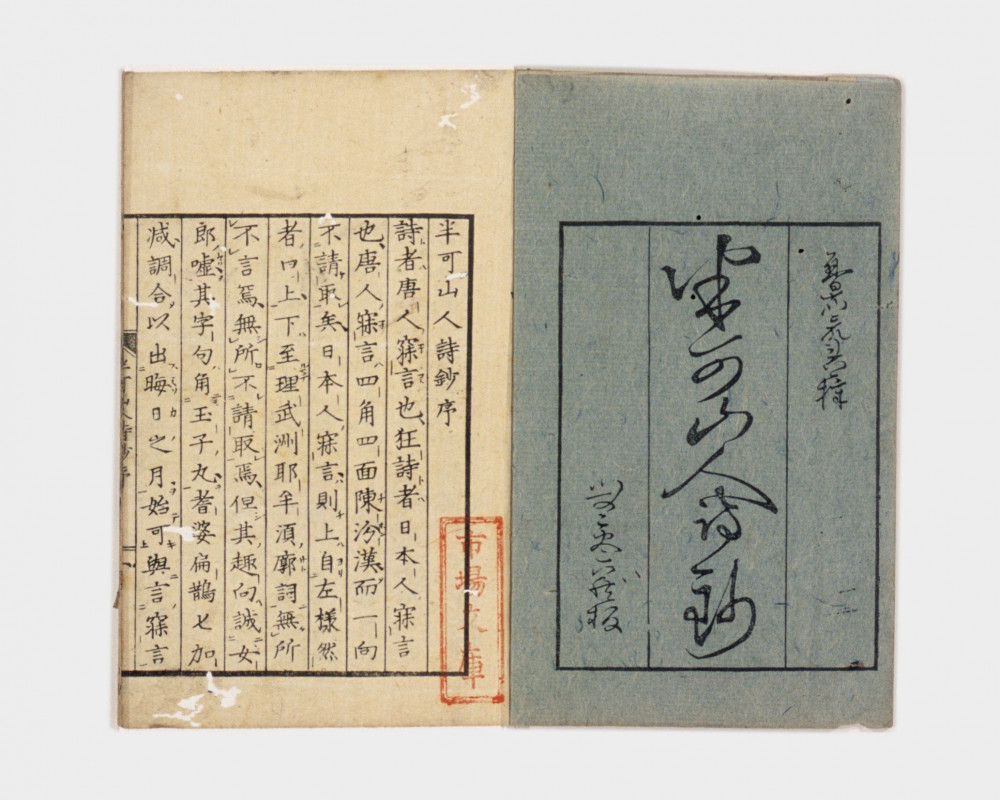 半可山人詩鈔
半可山人詩鈔序
詩者唐人寐言也狂詩者日本人寐言
也唐人寐言四角四面陳汾漢而一向
不請取矣日本人寐言則上自左様然
者口上下至理武洲耶牟須廓詞無所
不言焉無所不請取焉但其趣向誠女
郎嘘其字句角玉子丸耆婆扁鵲匕加
减調合以出晦日之月始可與言寐言
市場文庫